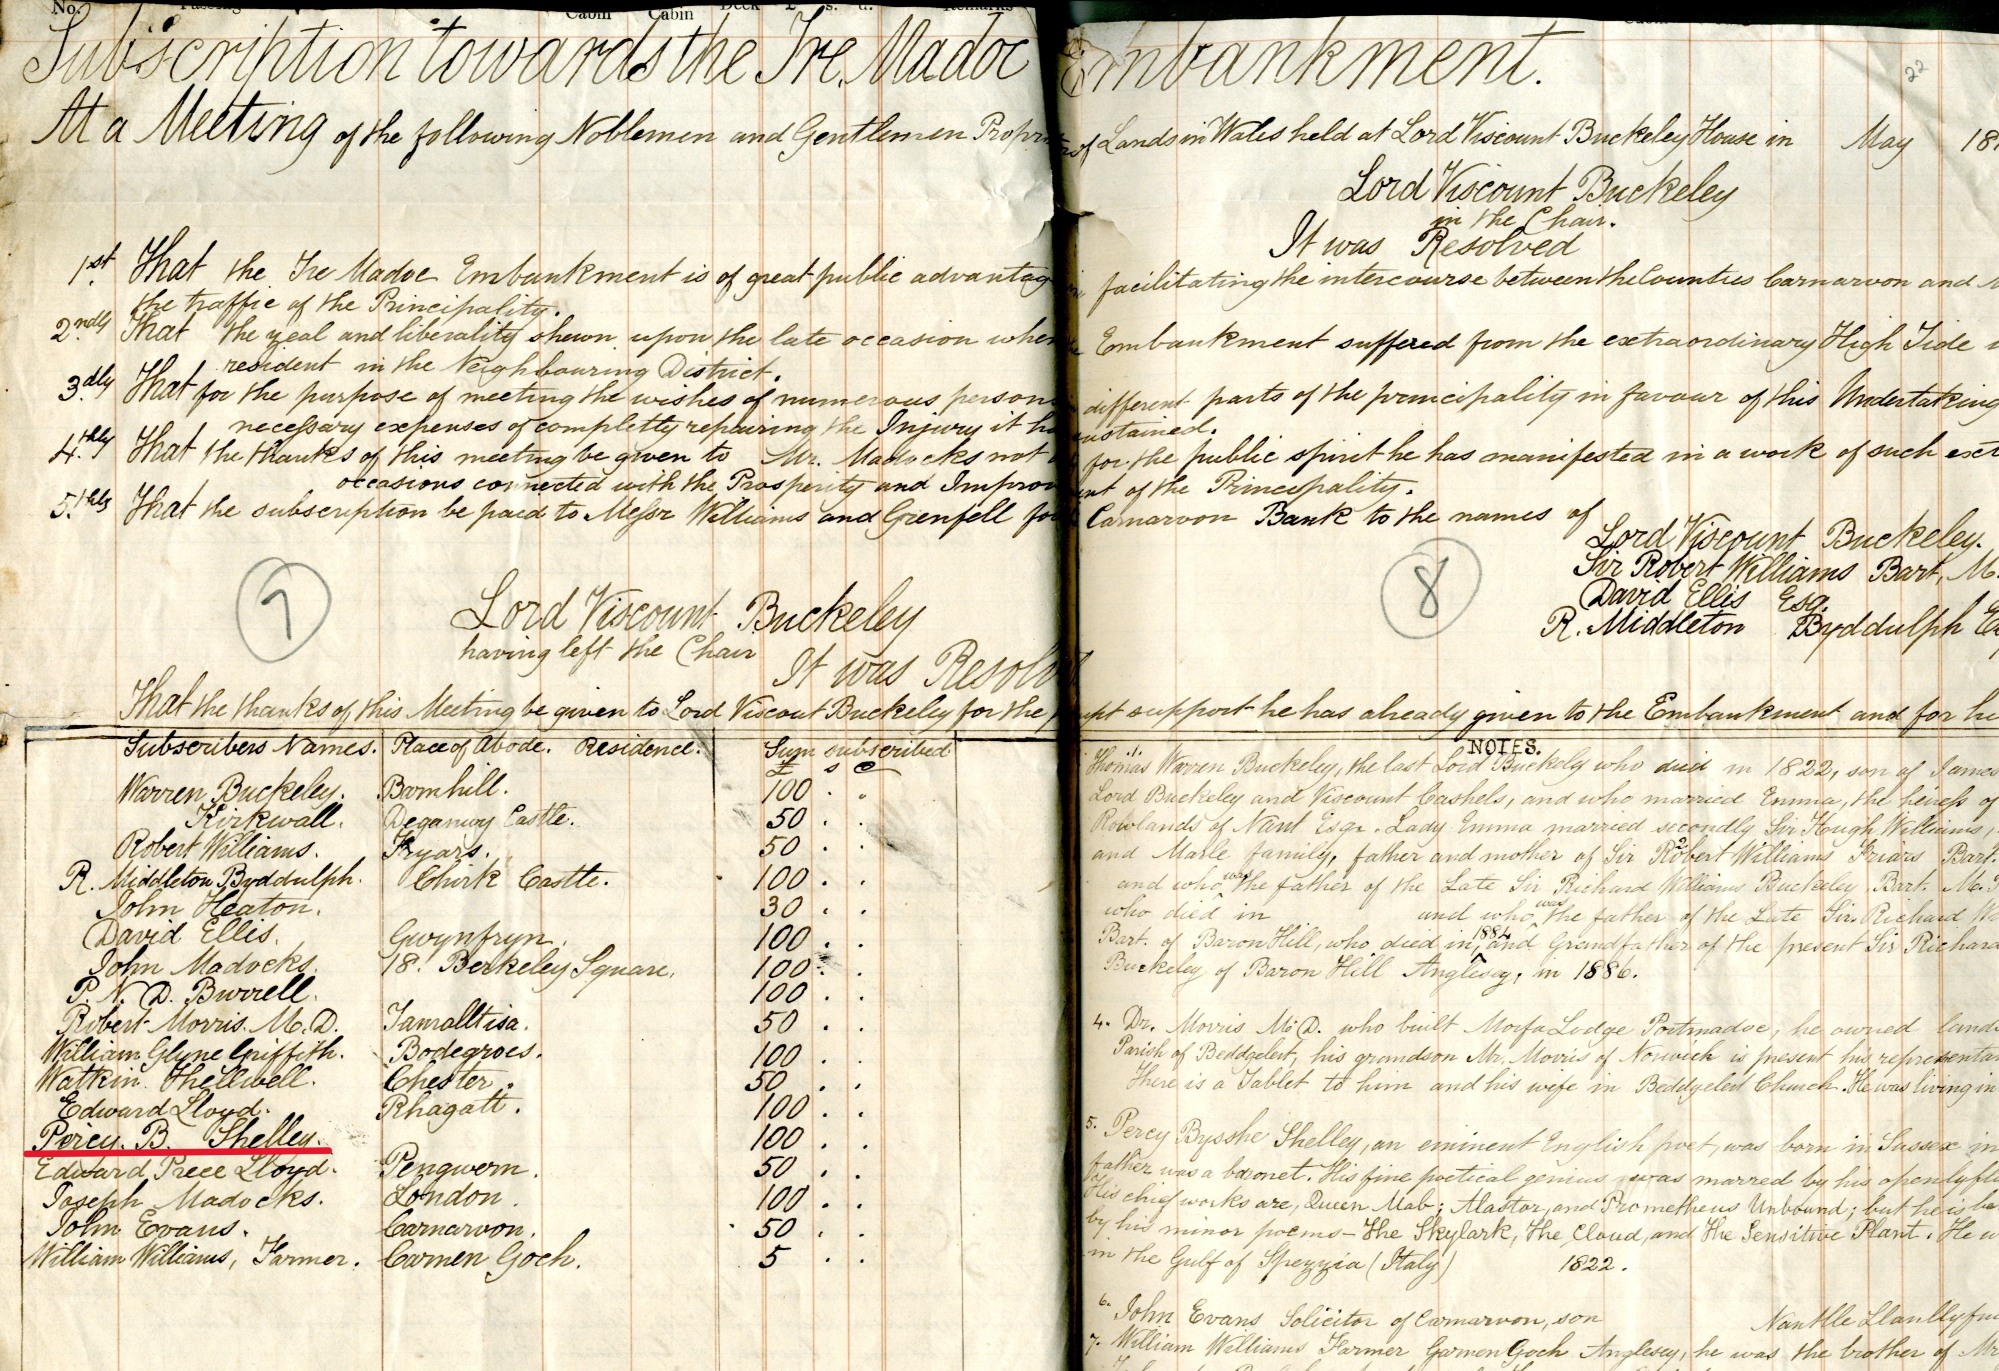 No. Passing Cabin Cabin Deck £ s. d. Remarks
22
Subscription towards the Tre. Madoc Embankment.
At a Meeting of the following Noblemen and Gentlemen of Lands in Wales held at Lord Viscount Buckeley House in May
Lord Viscount Buckeley
in the Chair.
It was Resolved
1st That the Tre Madoc Embankment is of great public facilitating the intercourse between the Counties Carnarvon and
the traffic of the Principality.
2ndly That the zeal and liberality shewn upon the late occasion Embankment suffered from the extraordinary High Tide
resident in the Neighbouring District.
3dly That for the purpose of meeting the wishes of numerous different parts of the principality in favour of this Undertaking
necessary expenses of completly repairing the Injury it
4thly That the thanks of this meeting be given to Mr. Madocks not for the public spirit he has manifested in a work of such
occasions connected with the Prosperity and of the Principality.
5thly That the subscription be paid to Messr Williams and Grenfell Carnarvon Bank to the names of
Lord Viscount Buckeley.
Sir Robert Williams Bart, M.
David Ellis Esq.
R. Middleton Byddulph
7
8
Lord Viscount Buckeley
having left the Chair
It was
That the thanks of this Meeting be given to Lord Viscout Buckeley for the support he has already given to the Embankment and for
Subscribers Names. Place of Abode. Residence. Sum subscribed
£ s
Warren Buckeley. Barnhill. 100 . .
Kirkwall. Deganwy Castle. 50 . .
Robert Williams. Fryars. 50 . .
R. Middleton Byddulph. Chirk Castle. 100 . .
John Heaton. 30 . .
David Ellis. Gwynfryn. 100 . .
John Madocks. 18. Berkeley Square. 100 . .
P. N. D. Burrell. 100 . .
Robert Morris. M. D. Tamalltisa. 50 . .
William Glyne Griffith. Bodegroes. 100 . .
Watkin Thellwell. Chester. 50 . .
Edward Lloyd. Rhagatt. 100 . .
Percy. B. Shelley. 100 . .
Edward Prece Lloyd. Pengwern. 50 . .
Joseph Madocks. London. 100 . .
John Evans. Carnarvon. 50 . .
William Williams, Farmer. Carmen Goch. 5 . .
NOTES.
1. Thomas Warren Buckeley, the last Lord Buckeley who died in 1822, son of James
Lord Buckeley and Viscount Cashels, and who married Emma, the heiress of
Rowlands of Nant Esqr. Lady Emma married secondly Sir Hough Williams,
and Marle family, father and mother of Sir Robert Williams Friars Bart.
and who was the father of the Late Sir Richard Williams Buckeley Bart. M.
who died in and who was the father of the Late Sir. Richard
Bart. of Baron Hill, who died in 1884, and Grandfather of the present Sir Richard
Buckeley of Baron Hill Anglesey, in 1886.
4. Dr. Morris M. D. who built Morfa Lodge Portmadoc, he owned
Parish of Beddgelert, his grandson Mr. Morris of Norwich is present his
There is a Tablet to him and his wife in Beddgelert Church. He was living in
5. Percy Bysshe Shelley, an eminent English poet, was born in Sussex in
father was a baronet. His fine poetical genius was marred by his
His chief works are, Queen Mab; Alastor, and Prometheus Unbound; but he is
by his minor poems – the Skylark, the Cloud, and the Sensitive Plant. He
in the Gulf of Spezzia (Italy) 1822.
6. John Evans Solicitor of Carnarvon, son Nantlle
7. William Williams Farmer Garmen Goch Anglesey, he was the brother of